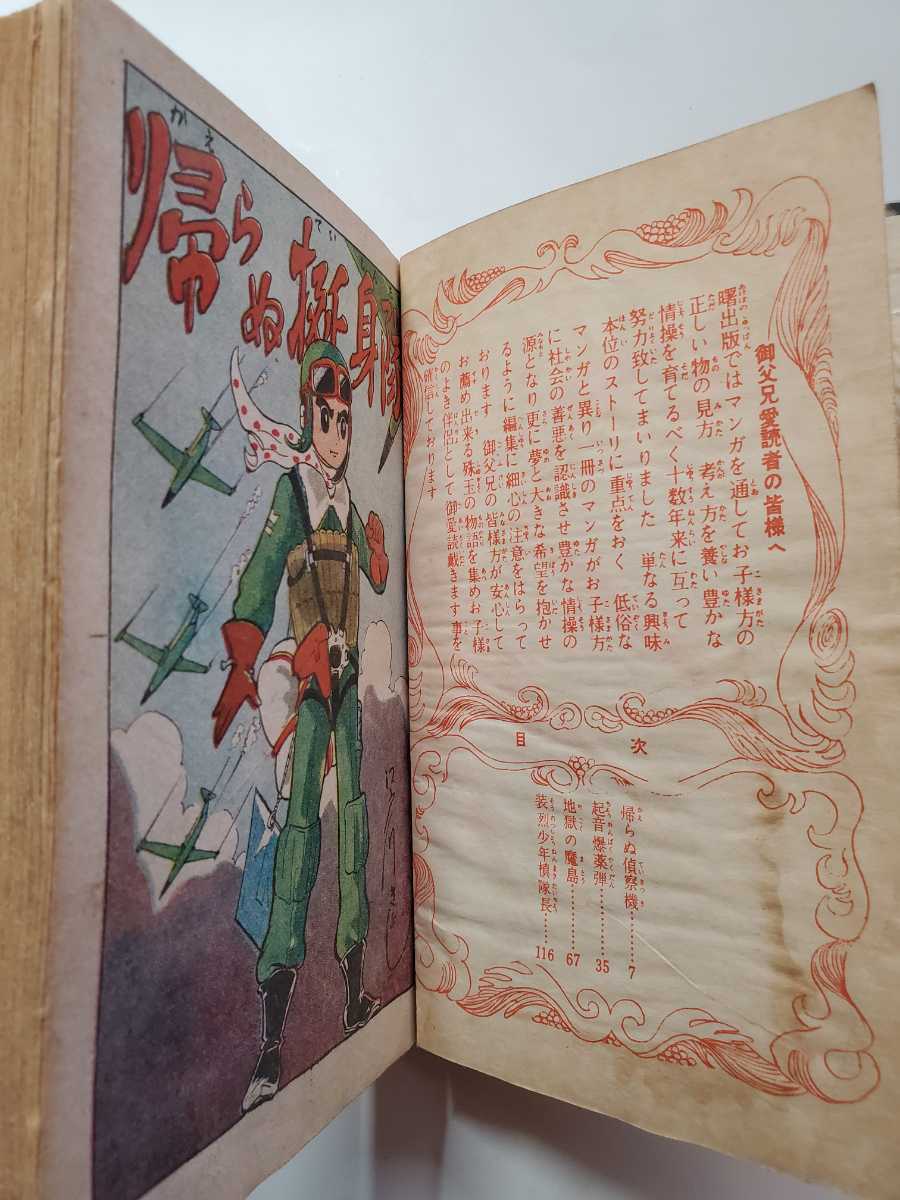 帰らぬ挺身隊
御父兄愛読者の皆様へ
曙出版ではマンガを通してお子様方の
正しい物の見方　考え方を養い豊かな
情操を育てるべく十数年来に亙って
努力致してまいりました　単なる興味
本位のストーリに重点をおく　低俗な
マンガと異り一冊のマンガがお子様方
に社会の善悪を認識させ豊かな情操の
源となり更に夢と大きな希望を抱かせ
るように編集に細心の注意をはらって
おります　御父兄の皆様方が安心して
お薦め出来る珠玉の物語を集めお子様
のよき伴侶として御愛読戴きます事を
確信しております
目次
帰らぬ偵察機………7
起音爆薬弾………35
地獄の魔島………67
装烈少年偵隊長……116